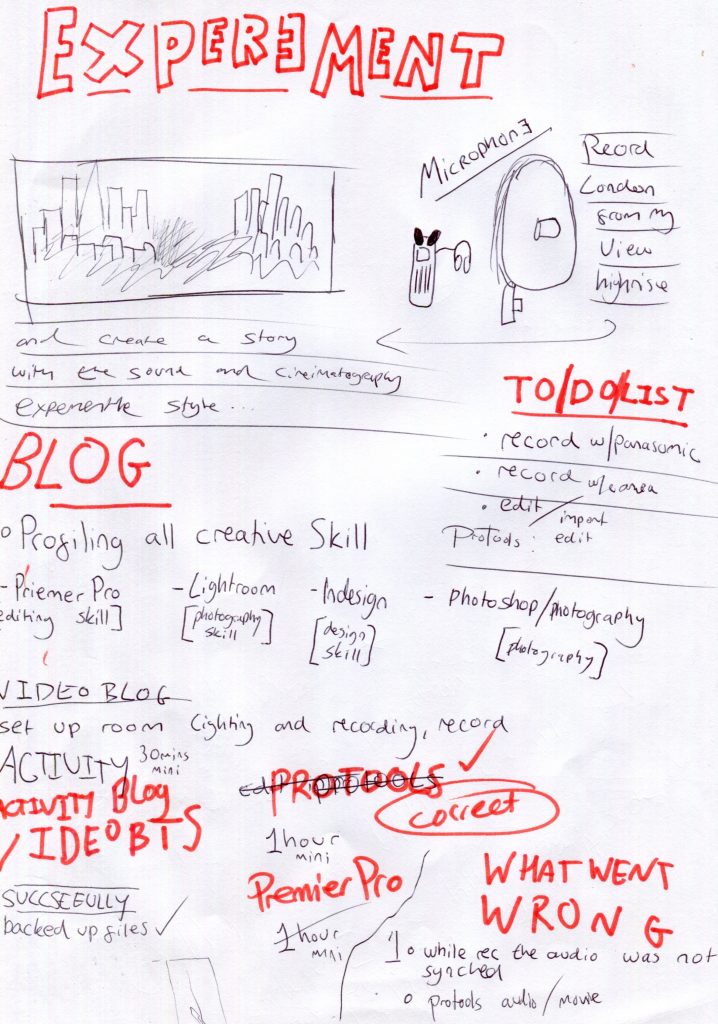 EXPEREMENT
MicrophonE
Record
London
from my
View
highrise
and create a story
with the sound and cineimatography
style...
TO/DO/LIST
• record w/panasonic
• record
• edit import
Protools: edit
BLOG
o Profiling all creative Skill
- Priemer Pro
editing skill]
- Lightroom
[photography
skill]
- Indesign
[design
skill]
- Photoshop/photography
[photography]
VIDEO BLOG
set up room lighting and recording, record
ACTIVITY 30mins
mini
ACTIVITY Blog
VIDEO BTS
SUCCSEEFULLY
backed up files ✓
PROTOOLS ✓
correct
1 hour
mini
Premier Pro
1 hour
mini
WHAT WENT
WRONG
1 o while rec the audio was not
synched
o protools audio/movie